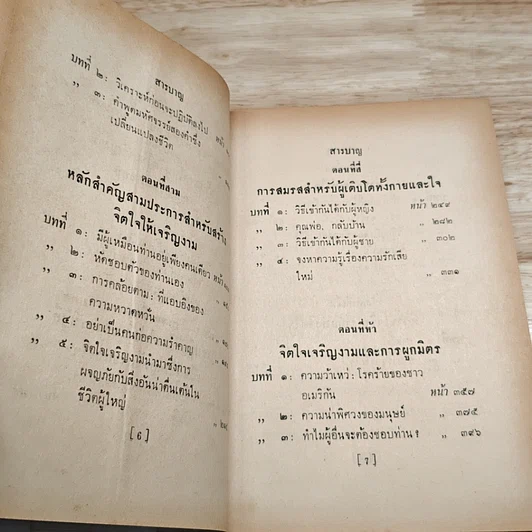 สารบาญ
บทที่ ๒: วิเคราะห์ก่อนจะปฏิบัติลงไป หน้า
,, ๓: คำพูดมหัศจรรย์สองคำซึ่ง
เปลี่ยนแปลงชีวิต ,,
ตอนที่สาม
หลักสำคัญสามประการสำหรับสร้าง
จิตใจให้เจริญงาม
บทที่ ๑: มีผู้เหมือนท่านอยู่เพียงคนเดียว หน้า
,, ๒: หัดชอบตัวของท่านเอง ,,
,, ๓: การคล้อยตาม: ที่แอบอิงของ
ความหวาดหวั่น ,,
,, ๔: อย่าเป็นคนก่อความรำคาญ ,,
,, ๕: จิตใจเจริญงามนำมาซึ่งการ
ผจญภัยกับสิ่งอันน่าตื่นเต้นใน
ชีวิตผู้ใหญ่ ,,
[ 6 ]
สารบาญ
ตอนที่สี่
การสมรสสำหรับผู้เติบโตทั้งกายและใจ
บทที่ ๑: วิธีเข้ากันได้กับผู้หญิง หน้า ๒๔๙
,, ๒: คุณพ่อ, กลับบ้าน ,, ๒๘๒
,, ๓: วิธีเข้ากันได้กับผู้ชาย ,, ๓๐๒
,, ๔: จงหาความรู้เรื่องความรักเสีย
ใหม่ ,, ๓๓๑
ตอนที่ห้า
จิตใจเจริญงามและการผูกมิตร
บทที่ ๑: ความว้าเหว่: โรคร้ายของชาว
อเมริกัน หน้า ๓๕๗
,, ๒: ความน่าพิศวงของมนุษย์ ,, ๓๗๕
,, ๓: ทำไมผู้อื่นจะต้องชอบท่าน? ,, ๓๙๖
[ 7 ]